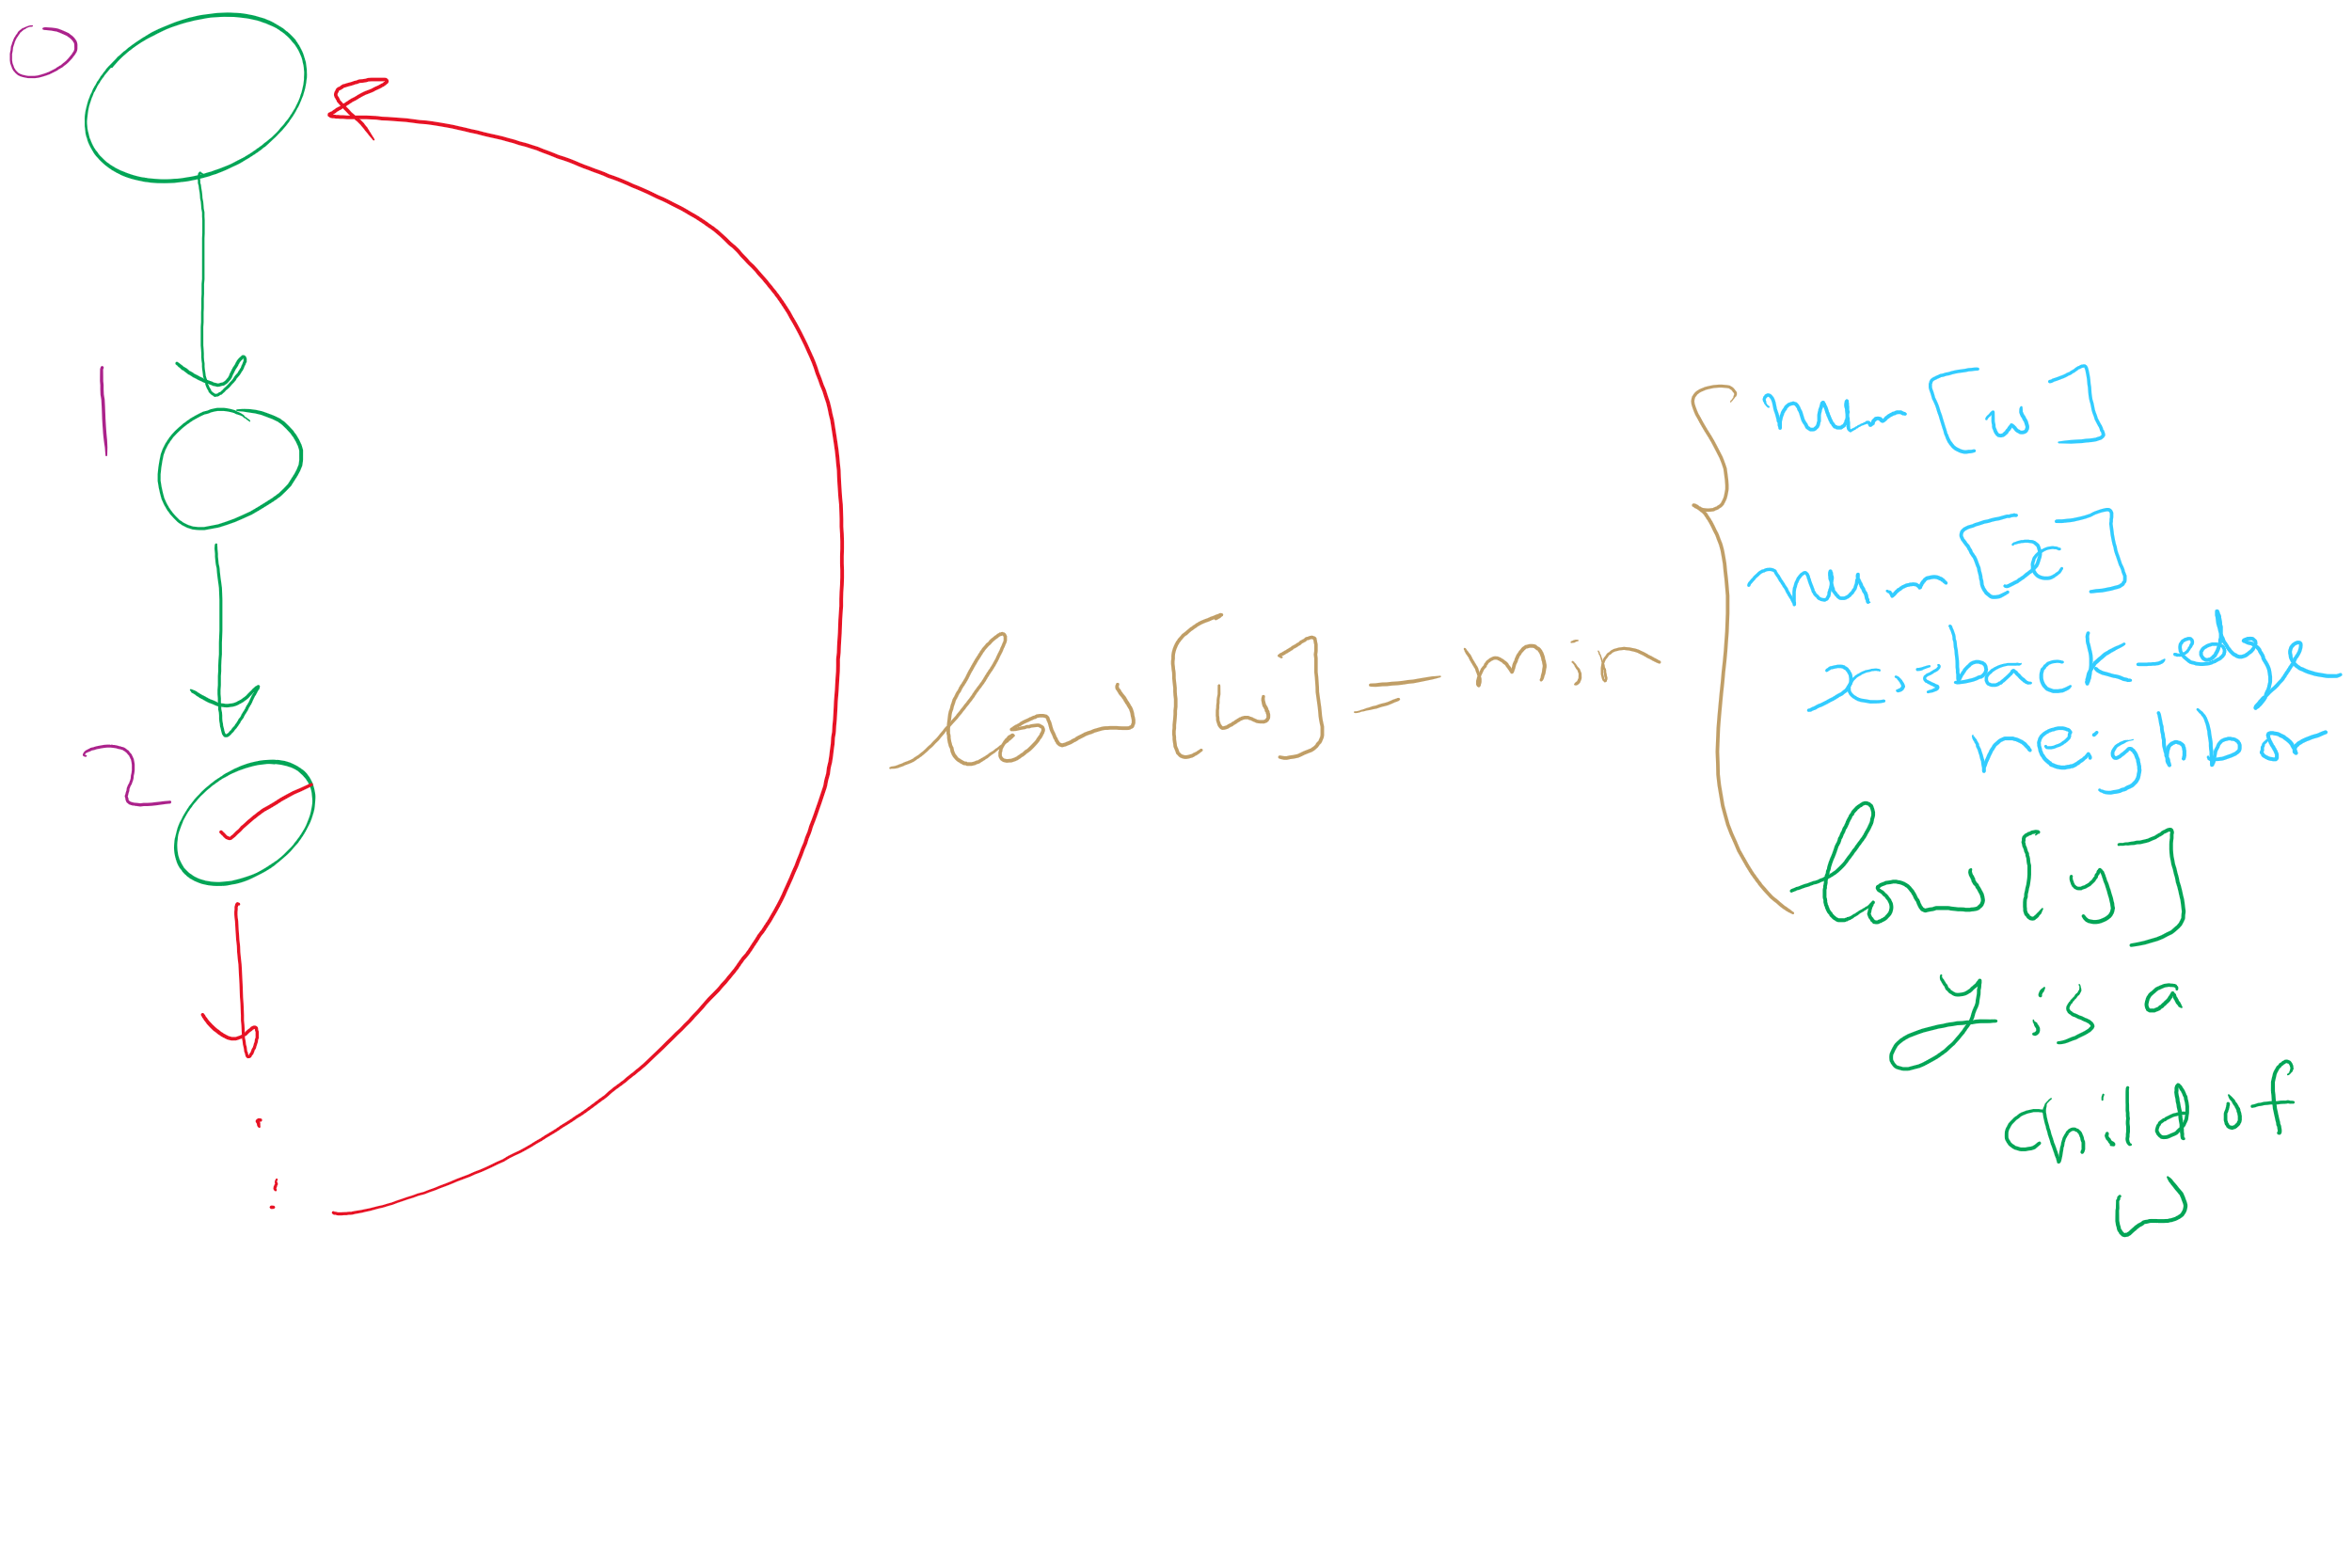 0
1
2
low[w] = min {
num[w]
num[x]
x is back-edge
neighbor
low[y]
y is a
child of
w